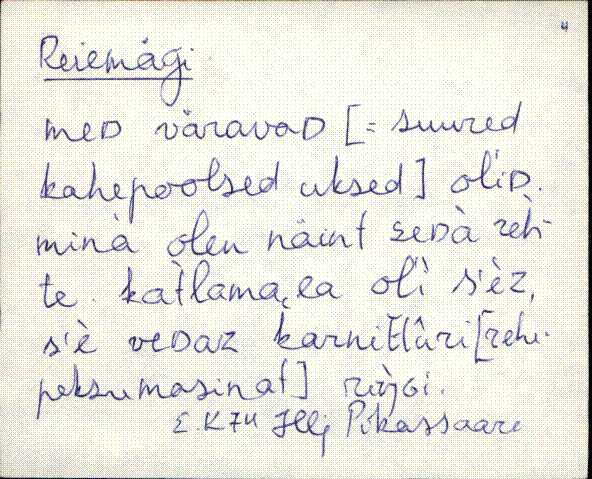 4
Reiemägi
meD väravaD [= suured
kahepoolsed uksed] oliD.
minà olen näint seDà reh-
te. katlama,ea ol'ì s'èz,
s'è veDaz [rehe-
peksumasinat]
E.K74 Pikassaare